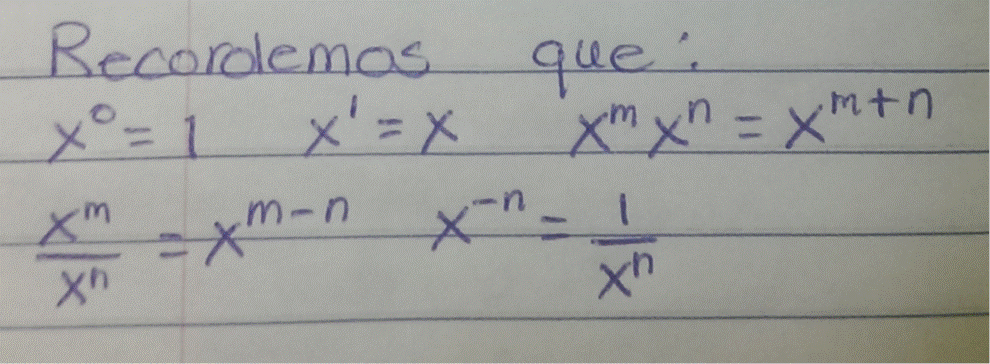 Recordemos que:
x⁰ = 1 x¹ = x xᵐ xⁿ = xᵐ⁺ⁿ
xᵐ/xⁿ = xᵐ⁻ⁿ x⁻ⁿ = 1/xⁿ